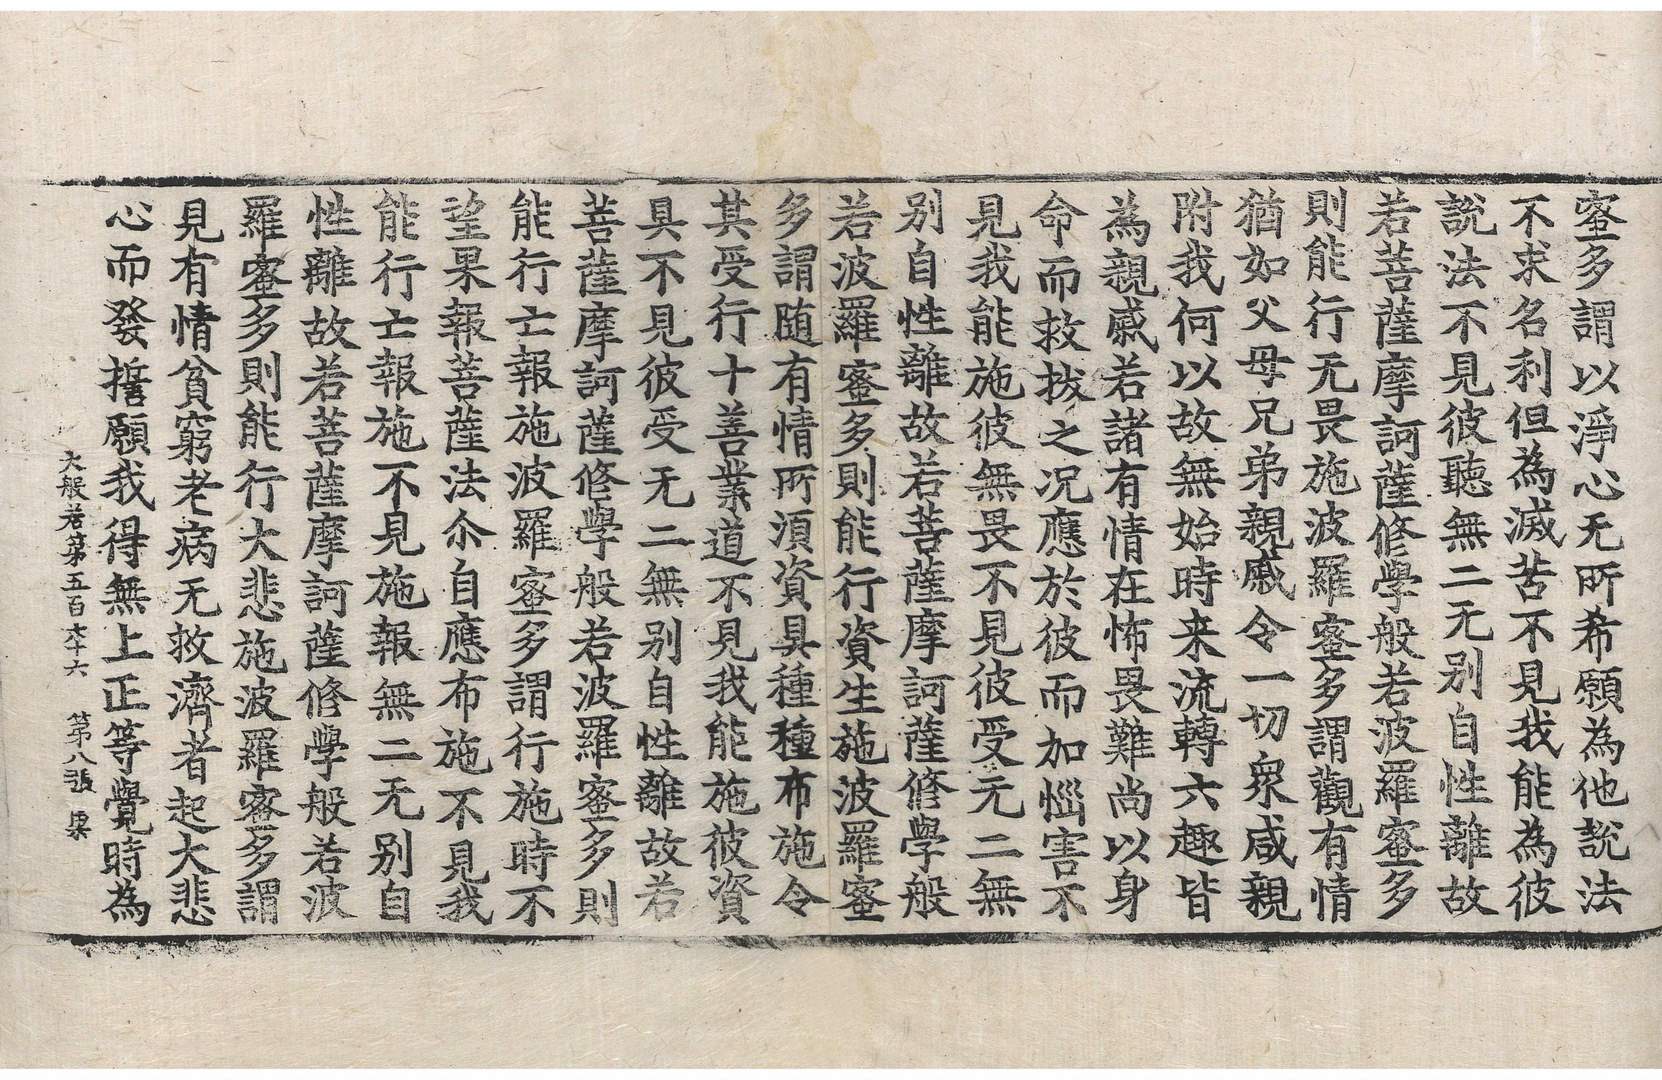 蜜多謂以淨心无所希願為他說法
不求名利但為滅苦不見我能為彼
說法不見彼聽無二无別自性離故
若菩薩摩訶薩修學般若波羅蜜多
則能行无畏施波羅蜜多謂觀有情
猶如父母兄弟親戚令一切衆咸親
附我何以故無始時来流轉六趣皆
為親戚若諸有情在怖畏難尚以身
命而救拔之况應於彼而加惱害不
見我能施彼無畏不見彼受无二無
別自性離故若菩薩摩訶薩修學般
若波羅蜜多則能行資生施波羅蜜
多謂随有情所湏資具種種布施令
其受行十善業道不見我能施彼資
具不見彼受无二無別自性離故若
菩薩摩訶薩修學般若波羅蜜多則
能行亡報施波羅蜜多謂行施時不
望果報菩薩法尒自應布施不見我
能行亡報施不見施報無二无別自
性離故若菩薩摩訶薩修學般若波
羅蜜多則能行大悲施波羅蜜多謂
見有情貧窮老病无救濟者起大悲
心而發誓願我得無上正等覺時為
大般若第五百六十六 第八張 果